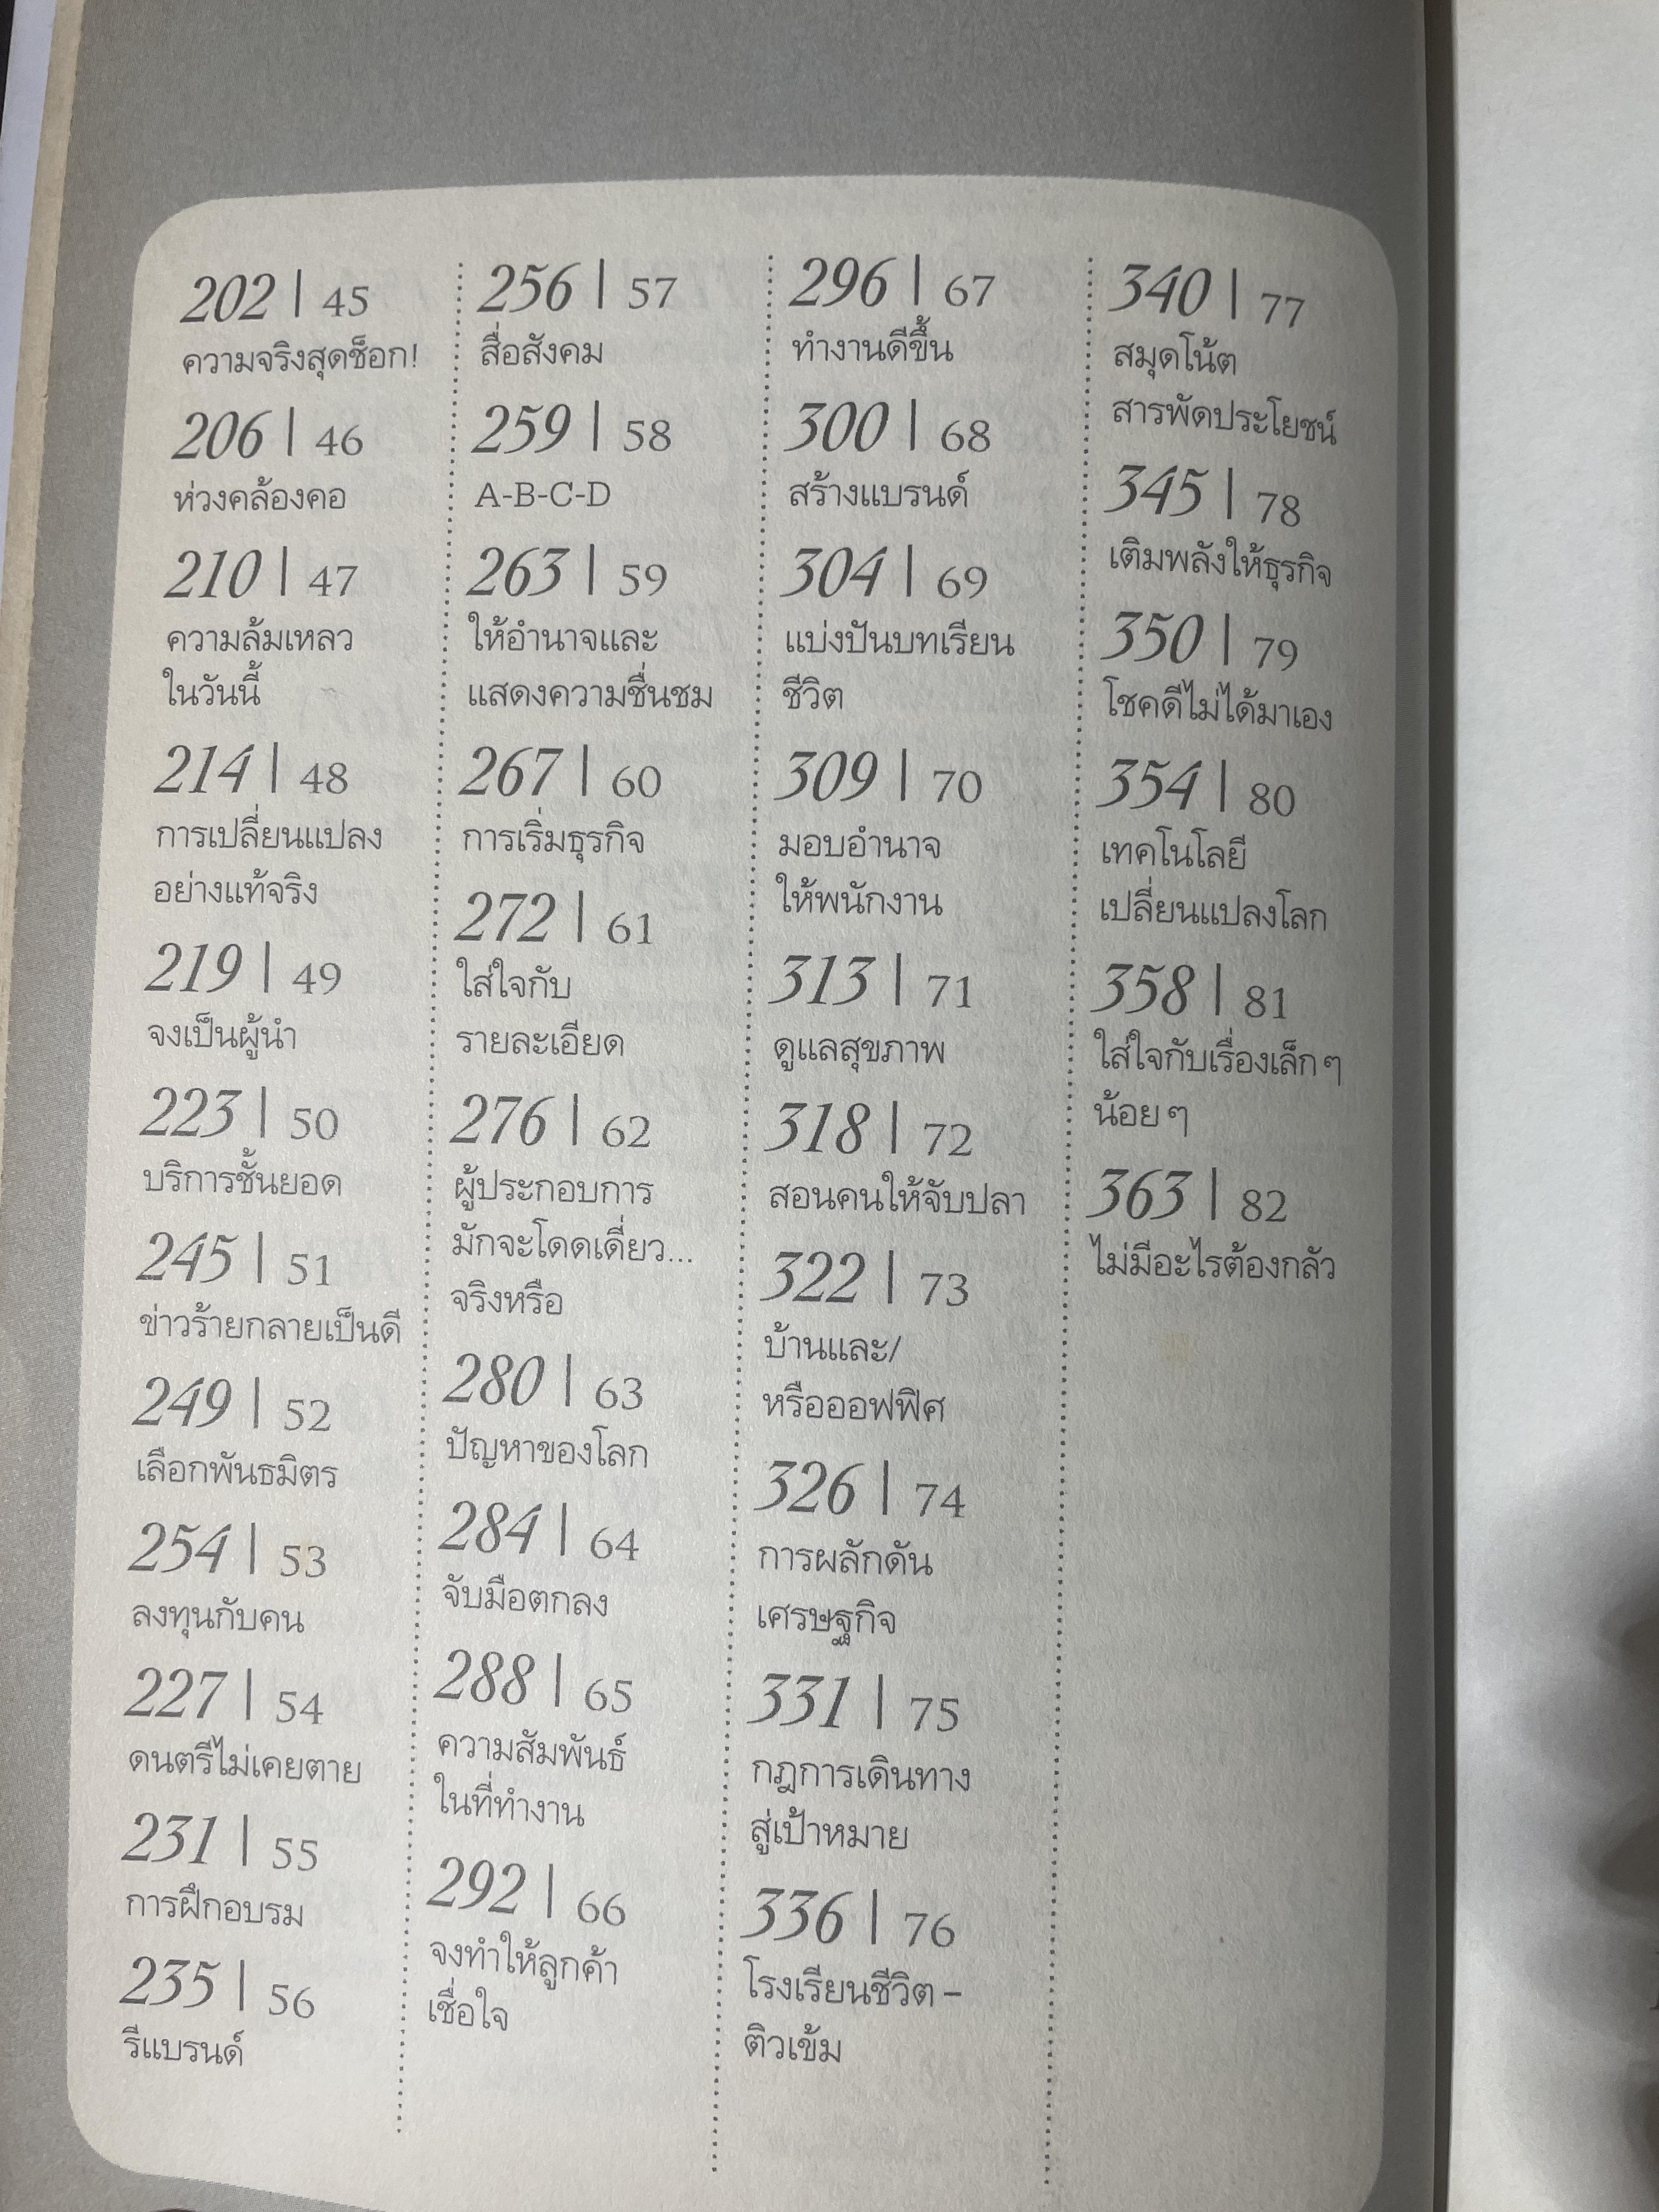 202 | 45
ความจริงสุดช็อก!
206 | 46
ห่วงคล้องคอ
210 | 47
ความล้มเหลว
ในวันนี้
214 | 48
การเปลี่ยนแปลง
อย่างแท้จริง
219 | 49
จงเป็นผู้นำ
223 | 50
บริการชั้นยอด
245 | 51
ข่าวร้ายกลายเป็นดี
249 | 52
เลือกพันธมิตร
254 | 53
ลงทุนกับคน
227 | 54
ดนตรีไม่เคยตาย
231 | 55
การฝึกอบรม
235 | 56
รีแบรนด์
256 | 57
สื่อสังคม
259 | 58
A-B-C-D
263 | 59
ให้อำนาจและ
แสดงความชื่นชม
267 | 60
การเริ่มธุรกิจ
272 | 61
ใส่ใจกับ
รายละเอียด
276 | 62
ผู้ประกอบการ
มักจะโดดเดี่ยว...
จริงหรือ
280 | 63
ปัญหาของโลก
284 | 64
จับมือตกลง
288 | 65
ความสัมพันธ์
ในที่ทำงาน
292 | 66
จงทำให้ลูกค้า
เชื่อใจ
296 | 67
ทำงานดีขึ้น
300 | 68
สร้างแบรนด์
304 | 69
แบ่งปันบทเรียน
ชีวิต
309 | 70
มอบอำนาจ
ให้พนักงาน
313 | 71
ดูแลสุขภาพ
318 | 72
สอนคนให้จับปลา
322 | 73
บ้านและ/
หรือออฟฟิศ
326 | 74
การผลักดัน
เศรษฐกิจ
331 | 75
กฎการเดินทาง
สู่เป้าหมาย
336 | 76
โรงเรียนชีวิต –
ติวเข้ม
340 | 77
สมุดโน้ต
สารพัดประโยชน์
345 | 78
เติมพลังให้ธุรกิจ
350 | 79
โชคดีไม่ได้มาเอง
354 | 80
เทคโนโลยี
เปลี่ยนแปลงโลก
358 | 81
ใส่ใจกับเรื่องเล็ก ๆ
น้อย ๆ
363 | 82
ไม่มีอะไรต้องกลัว